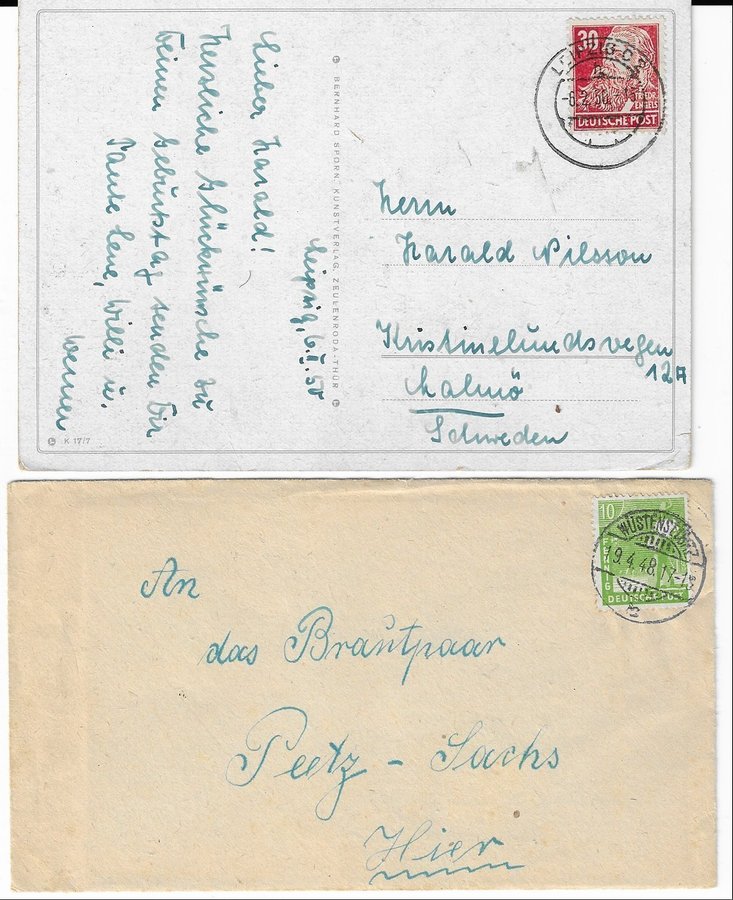 Leipzig, 6.II.50
Lieber Harald!
Herzliche Glückwünsche zu
Deinem Geburtstag senden Dir
Tante Lene, Willi u.
Werner
BERNHARD SPORN, KUNSTVERLAG, ZEULENRODA-THÜR
K 17/7
30
FRIEDR.
ENGELS
DEUTSCHE POST
LEIPZIG C 2
-8.2.50
Herrn
Harald Nilsson
Kristinelundsvegen
12A
Malmö
Schweden
10
PFENNIG
DEUTSCHE POST
9.4.48.17-18
An
das Brautpaar
Peetz - Sachs
Hier